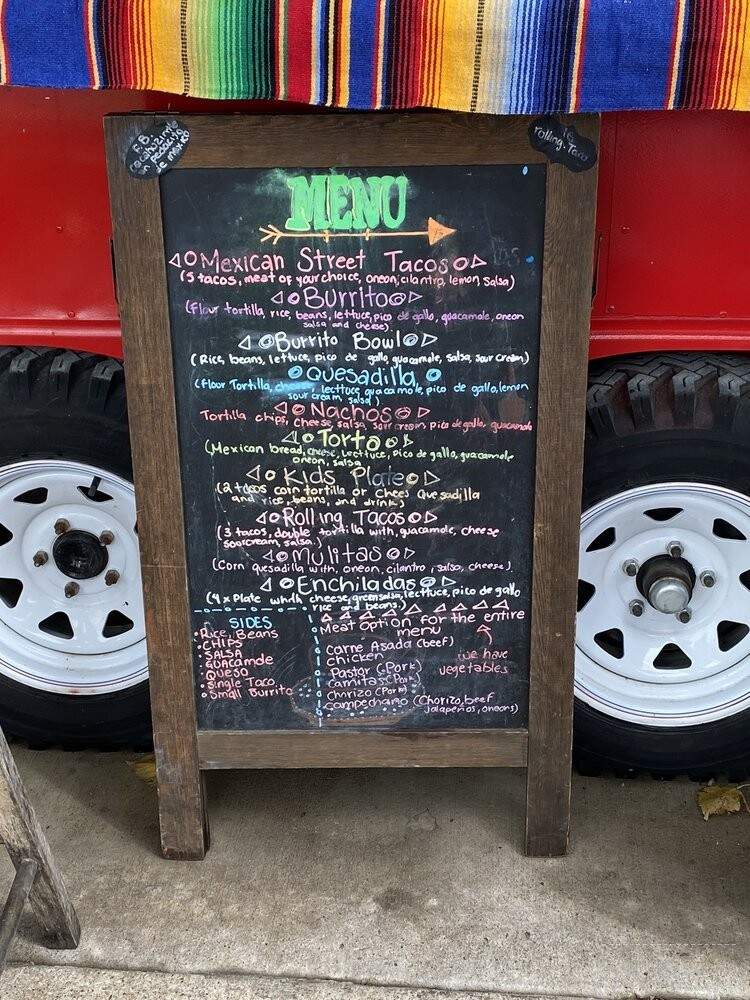 F.B.
cocahozintle
un pedacito
de mexico
IG
rolling.Taco
MENU
Mexican Street Tacos
(5 tacos, meat of your choice, oneon, cilantro, lemon, salsa)
Burrito
(Flour tortilla, rice, beans, lettuce, pico de gallo, guacamole, oneon
salsa and cheese)
Burrito Bowl
(Rice, beans, lettuce, pico de gallo, guacamole, salsa, sour cream)
Quesadilla
(Flour Tortilla, cheese, lecttuce, guacamole, pico de gallo, lemon
sour cream, salsa)
Nachos
Tortilla chips, cheese, salsa, sour cream, pico de gallo, guacamole
Torta
(Mexican bread, cheese, lecttuce, pico de gallo, guacamole
oneon, salsa
Kids Plate
(2 tacos corn tortilla or chees quesadilla
and rice, beans, and drink)
Rolling Tacos
(3 tacos, double tortilla with, guacamole, cheese
sourcream, salsa)
Mulitas
(Corn quesadilla with, oneon, cilantro, salsa, cheese)
Enchiladas
(4x Plate whith cheese, green salsa, lecttuce, pico de gallo
rice and beans)
SIDES
Rice, Beans
CHIPS
SALSA
GUACAMOLE
QUESO
Single Taco
Small Burrito
Meat option for the entire
menu
Carne Asada (beef)
chicken
Pastor (Pork)
carnitas (Pork)
chorizo (Pork)
campechano (Chorizo, beef
Jalapeños, oneons)
we have
vegetables